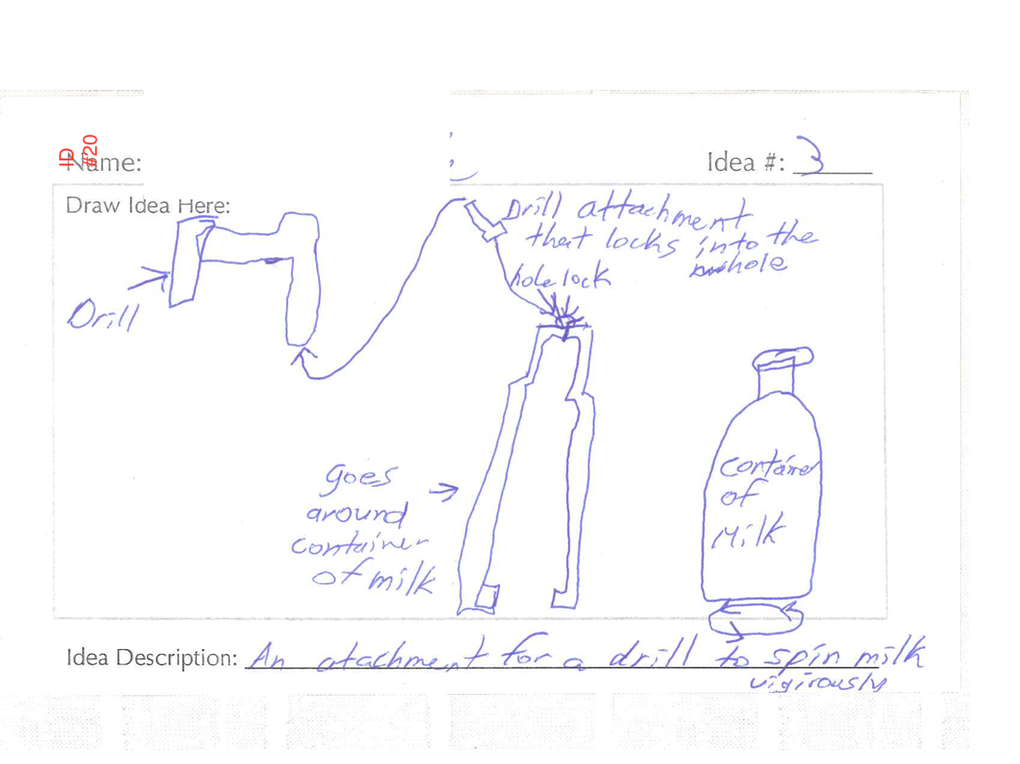 ID
#20
Name:
Idea #: 3
Draw Idea Here:
Drill attachment
that locks into the
hole
hole lock
Drill
goes
around
container
of milk
container
of
Milk
Idea Description: An atachment for a drill to spin milk
vigirously